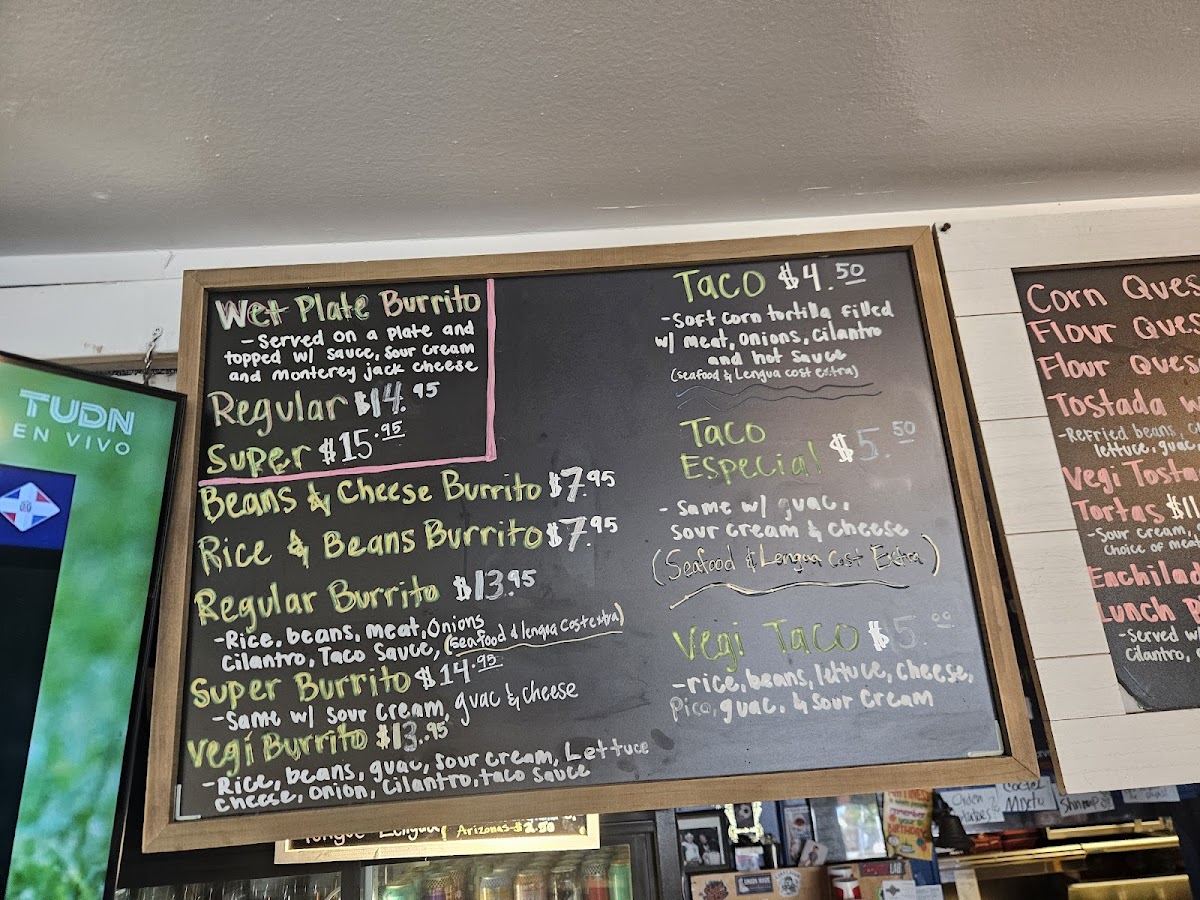 TUDN
EN VIVO
Wet Plate Burrito
- Served on a Plate and
topped w/ Sauce, Sour Cream
and Monterey jack cheese
Regular $14.95
Super $15.95
Beans & Cheese Burrito $7.95
Rice & Beans Burrito $7.95
Regular Burrito $13.95
- Rice, beans, meat, Onions
Cilantro, Taco Sauce, (Seafood & lengua cost extra)
Super Burrito $14.95
- Same w/ Sour Cream, guac & cheese
Vegi Burrito $13.95
- Rice, beans, guac, Sour cream, Lettuce
cheese, onion, cilantro, taco Sauce
Taco $4.50
- Soft corn tortilla filled
w/ meat, onions, Cilantro
and hot Sauce
(seafood & Lengua cost extra)
Taco
Especial $5.50
- Same w/ guac,
Sour Cream & cheese
(Seafood & Lengua Cost Extra)
Vegi Taco $5.00
- rice, beans, lettuce, cheese,
Pico, guac, & Sour Cream
Corn Ques
Flour Ques
Flour Ques
Tostada w
- Refried beans, c
lettuce, guac,
Vegi Tosta
Tortas $11
- Sour cream,
Choice of meat
Enchilad
Lunch
- Served w
Cilantro,
Tongue Lengua
Arizonas $2.50
Shrimp